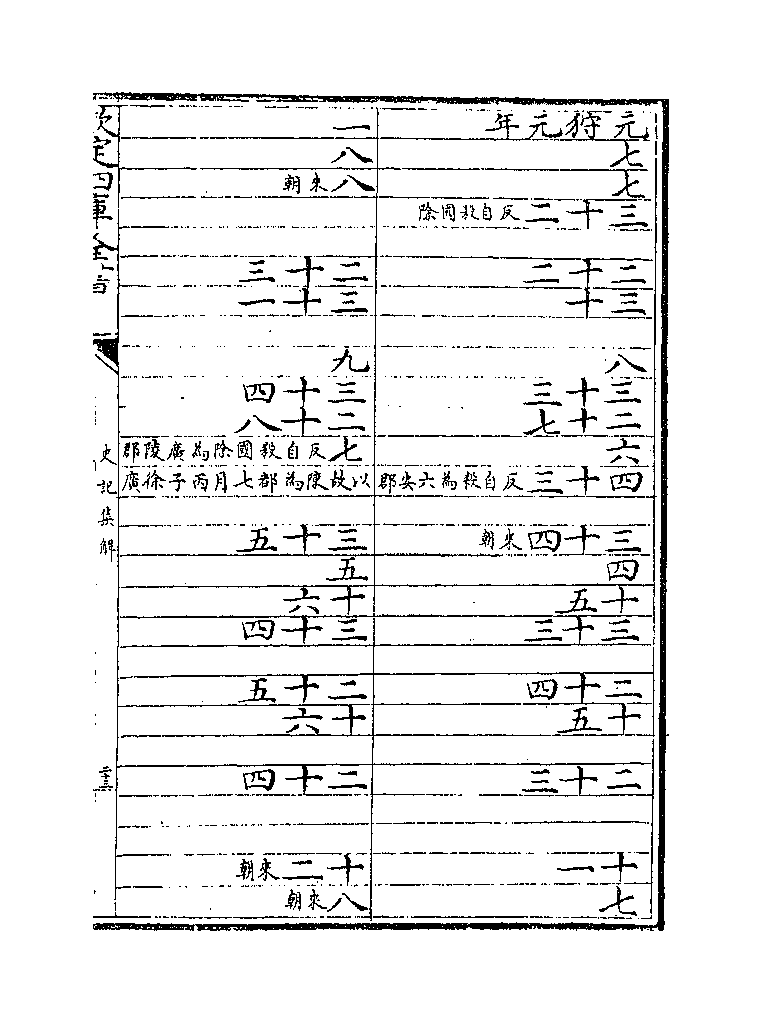 元狩元年
七
七
三十二反自殺國除
二十二
三十
八
三十三
二十七
六
四十三反自殺為六安郡
三十四來朝
四
十五
三十三
二十四
十五
二十三
十一
七
一
八
八來朝
二十三
三十一
九
三十四
二十八
七反自殺國除為廣陵郡
以故陳為郡七月丙子徐廣
三十五
五
十六
三十四
二十五
十六
二十四
十二來朝
八來朝
欽定四庫全書
史記集解